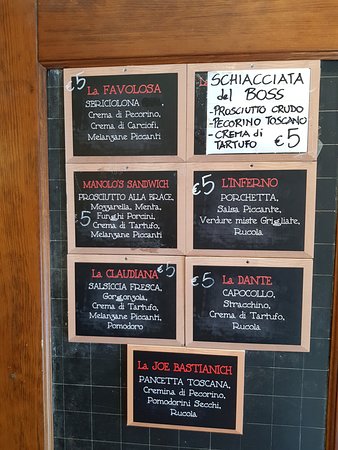 €5
La FAVOLOSA
SBRICIOLONA,
Crema di Pecorino,
Crema di Carciofi,
Melanzane Piccanti
SCHIACCIATA
del BOSS
-PROSCIUTTO CRUDO
-PECORINO TOSCANO
-CREMA di
TARTUFO €5
MANOLO'S SANDWICH
PROSCIUTTO ALLA BRACE,
Mozzarella, Menta,
€5 Funghi Porcini,
Crema di Tartufo,
Melanzane Piccanti
€5 L'INFERNO
PORCHETTA,
Salsa Piccante,
Verdure miste Grigliate,
Rucola
La CLAUDIANA €5
SALSICCIA FRESCA,
Gorgonzola,
Crema di Tartufo,
Melanzane Piccanti,
Pomodoro
€5 La DANTE
CAPOCOLLO,
Stracchino,
Crema di Tartufo,
Rucola
La JOE BASTIANICH
PANCETTA TOSCANA,
Cremina di Pecorino,
Pomodorini Secchi,
Rucola